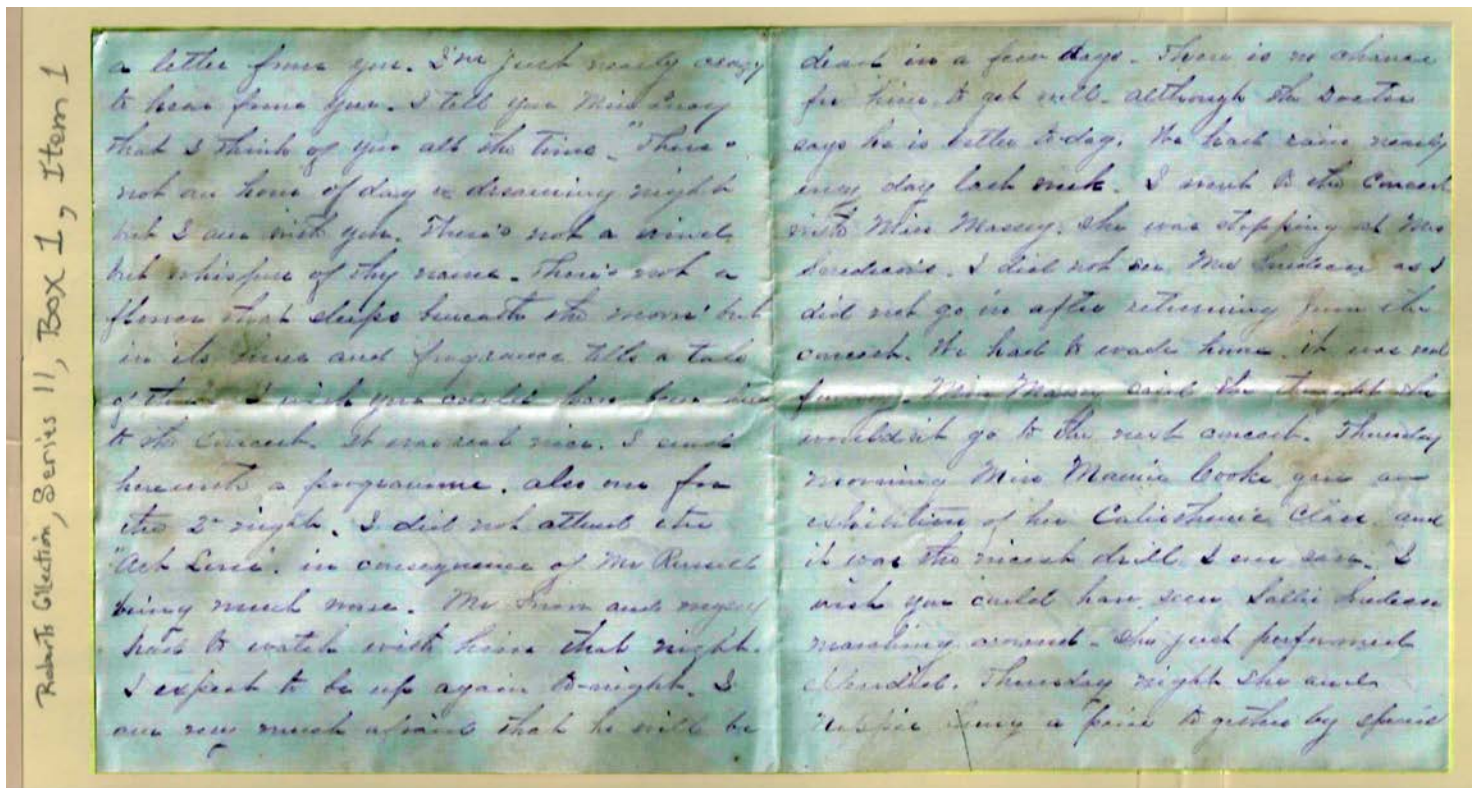 Roberts Collection, Series II, Box 1, Item 1
a letter from you. I'm just nearly crazy
to hear from you. I tell you Miss
that I think of you all the time. "There's
not an hour of day or dreaming night
but I am with you. There's not a wind
but whispers of thy name. There's not a
flower that sleeps beneath the moon but
in its hues and fragrance tells a tale
of thee" I wish you could have been here
to the concert. It was real nice. I send
herewith a programme. also one for
the 2" night. I did not attend the
in consequence of Mr Russell
being much worse. Mr and myself
had to watch with him that night.
I expect to be up again to-night. I
am very much afraid that he will be
dead in a few days. There is no chance
for him to get well. although the Doctor
says he is better to-day. We had rain nearly
every day last week. I went to the concert
with Miss Massey. she was stopping at Mrs
I did not see Mrs as I
did not go in after returning from the
concert. We had to wade home. it was real
funny. Miss Massey said she thought she
wouldn't go to the next concert. Thursday
morning Miss Mamie Cooke gave an
exhibition of her Calisthenic Class and
it was the nicest drill I ever saw. I
wish you could have seen Sallie
marching around. She just performed
splendid. Thursday night she and
a together by